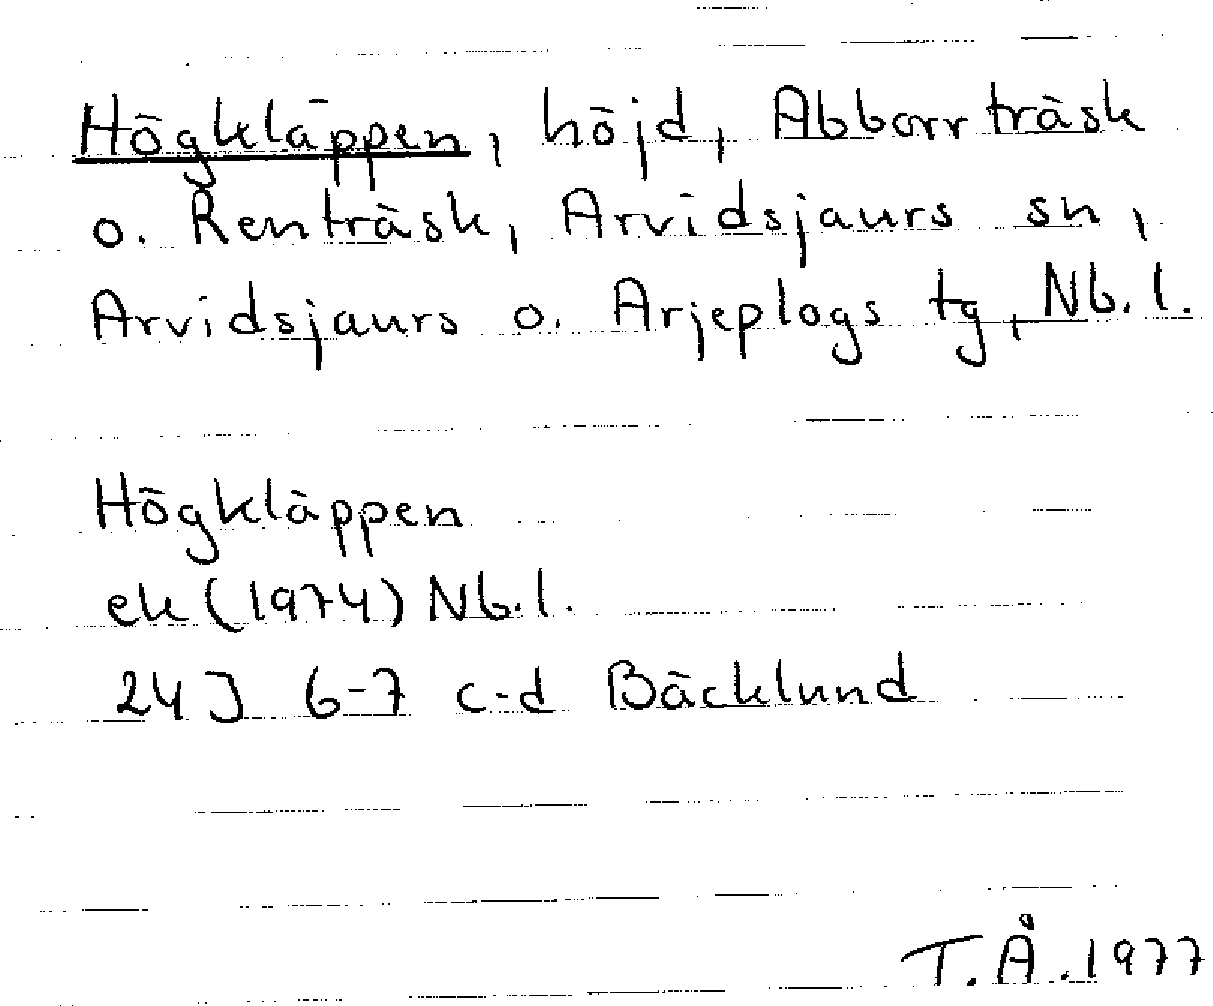 Högkläppen, höjd, Abborrträsk
o. Renträsk, Arvidsjaurs sn,
Arvidsjaurs o. Arjeplogs tg, Nb.l.
Högkläppen
ek (1974) Nb.l.
24J 6-7 c-d Bäcklund
T.Å.1977